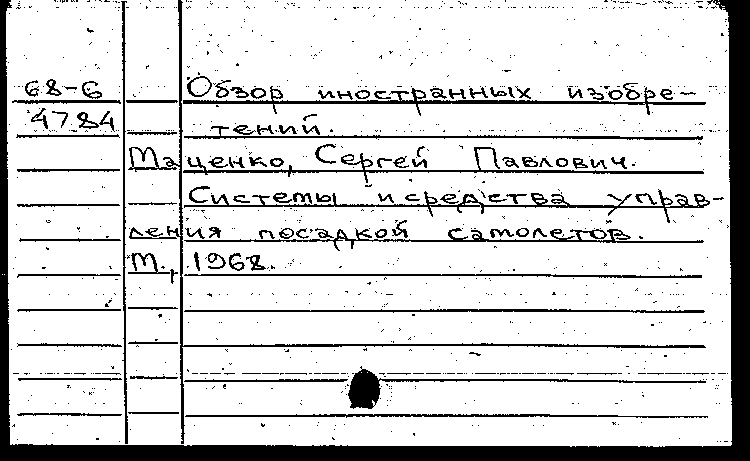 68-6 Обзор иностранных изобре-
4784 тений.
Маценко, Сергей Павлович.
Системы и средства управ-
ления посадкой самолетов.
М., 1968.